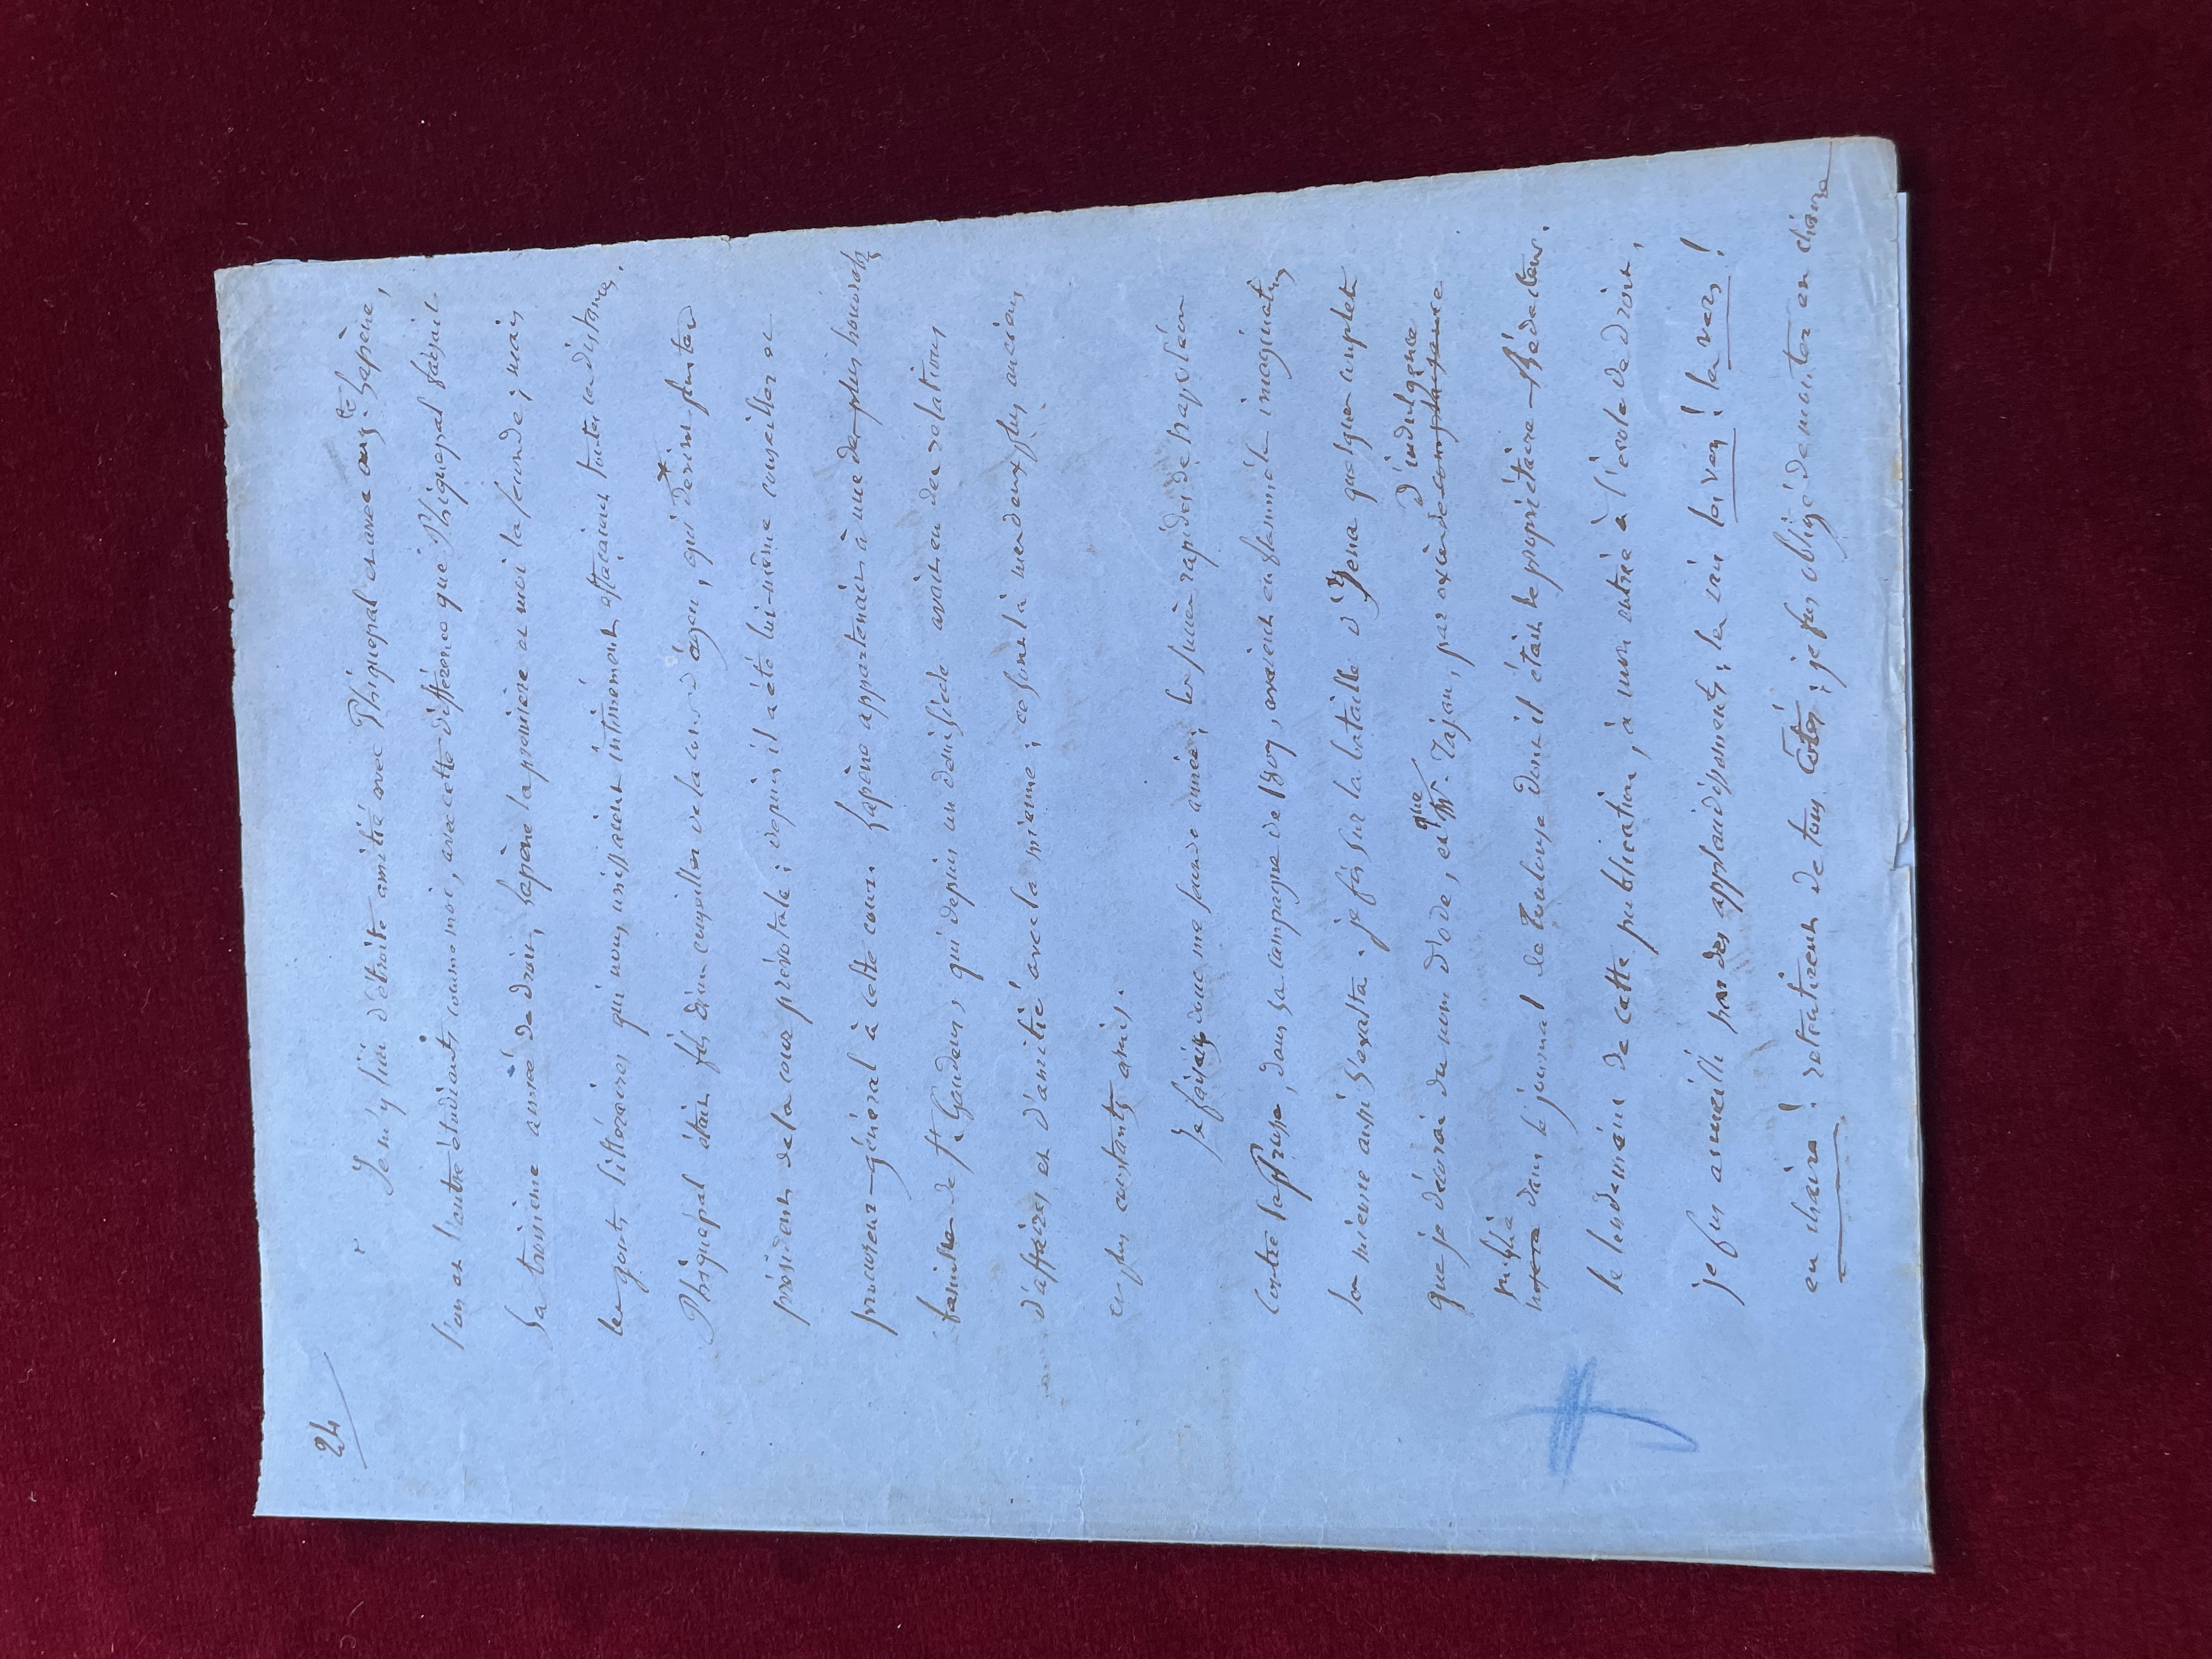 24
Je m'y liai d'étroite amitié avec Phiquepal et avec aug.te Lapène,
l'un et l'autre étudiants comme moi, avec cette différence que Phiquepal faisait
sa troisième année de droit, Lapène la première et moi la seconde; mais
les gouts littéraires qui nous unissaient intimement effaçaient toutes les distances.
Phiquepal était fils d'un conseiller de la cour d'agen, qui devint plus tard
président de la cour prévotale; depuis il a été lui-même conseiller et
procureur-général à cette cour. Lapène appartenait à une des plus honorables
familles de St. Gaudens, qui depuis un demi siècle avait eu des relations
d'affaires et d'amitié avec la mienne; ce sont là mes deux plus anciens
et plus constants amis.
Je faisais donc ma seconde année; les succès rapides de Napoléon
contre la Prusse, dans sa campagne de 1807, avaient enflammé les imaginations
la mienne aussi s'exalta. je fis sur la bataille d'Jena quelques couplets
que je décorai du nom d'ode, et que Mr. Tajan, par excès de complaisance d'indulgence
inséra publia dans le journal de Toulouse dont il était le propriétaire-Rédacteur.
le lendemain de cette publication, à mon entrée à l'école de droit,
je fus accueilli par des applaudissements; les cris les vers! les vers!
en chaire! retentirent de tous cotés; je fus obligé de monter en chaire